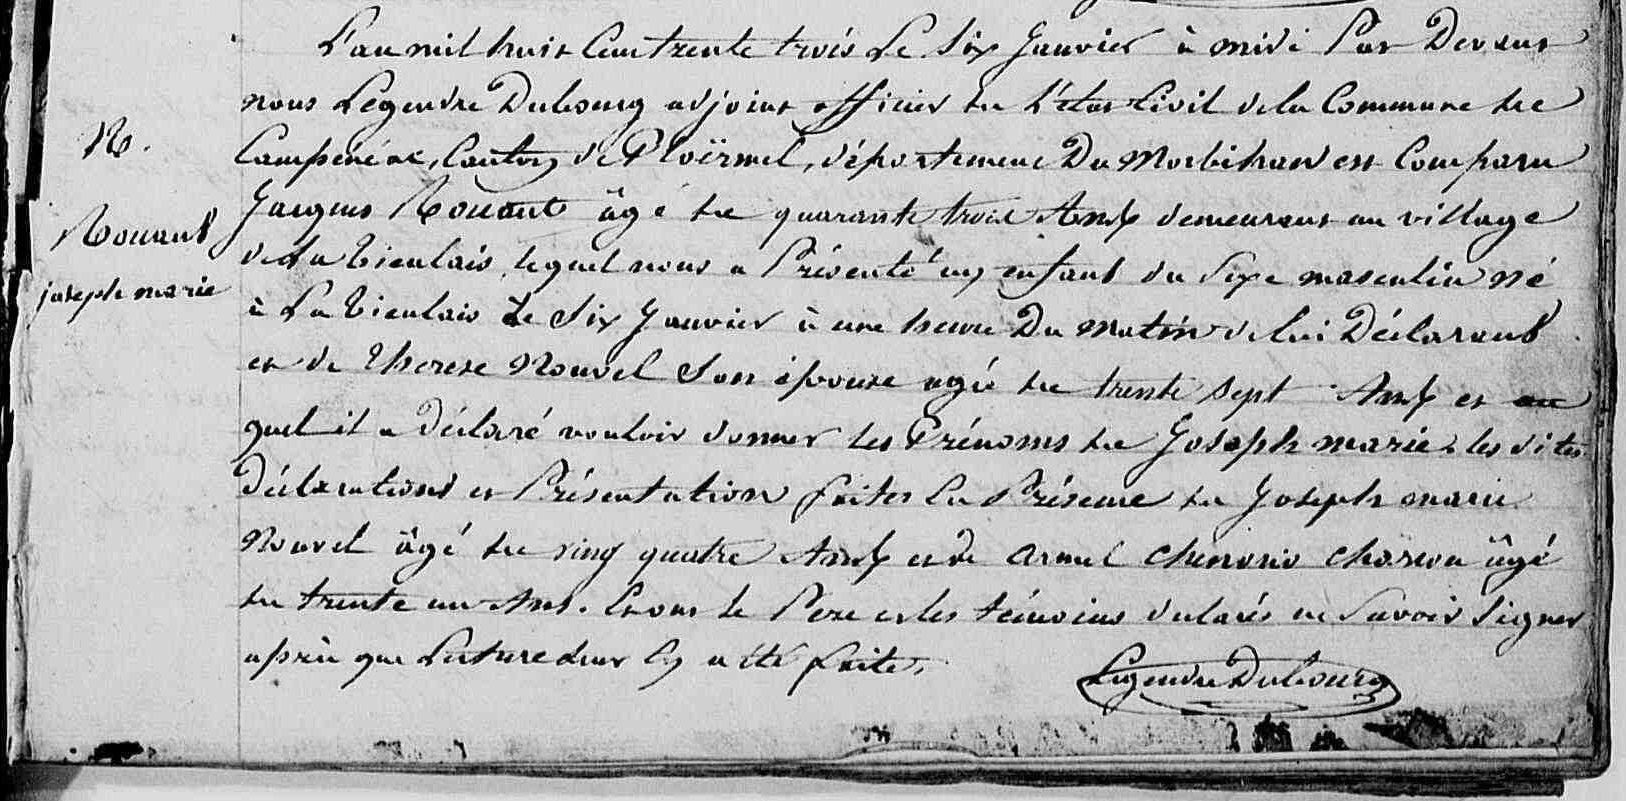 L'an mil huit Cent trente trois Le Six Janvier à midi Par Devant
nous Legendre Dubourg adjoint officier de L'état Civil de la Commune de
N.
Campénéac, Canton de Ploërmel, département Du Morbihan est Comparu
Jacques Rouault âgé de quarante trois Ans demeurant au village
Rouault
de La tieulais lequel nous a Présenté un enfant du Sexe masculin né
joseph marie
à La tieulais Le Six Janvier à une heure Du Matin de lui Déclarant
et de Therese Nouvel Son épouse agée de trente sept Ans et au
quel il a déclaré vouloir donner les Prénoms de Joseph marie les dites
déclarations et Présentation faites En Présence de Joseph marie
Nouvel âgé de ving quatre Ans et de armel âgé
de trente un Ans. Enons le Pere et les témoins declarés ne Savoir Signer
après que Lecture leur En a été faite.
Legendre Dubourg